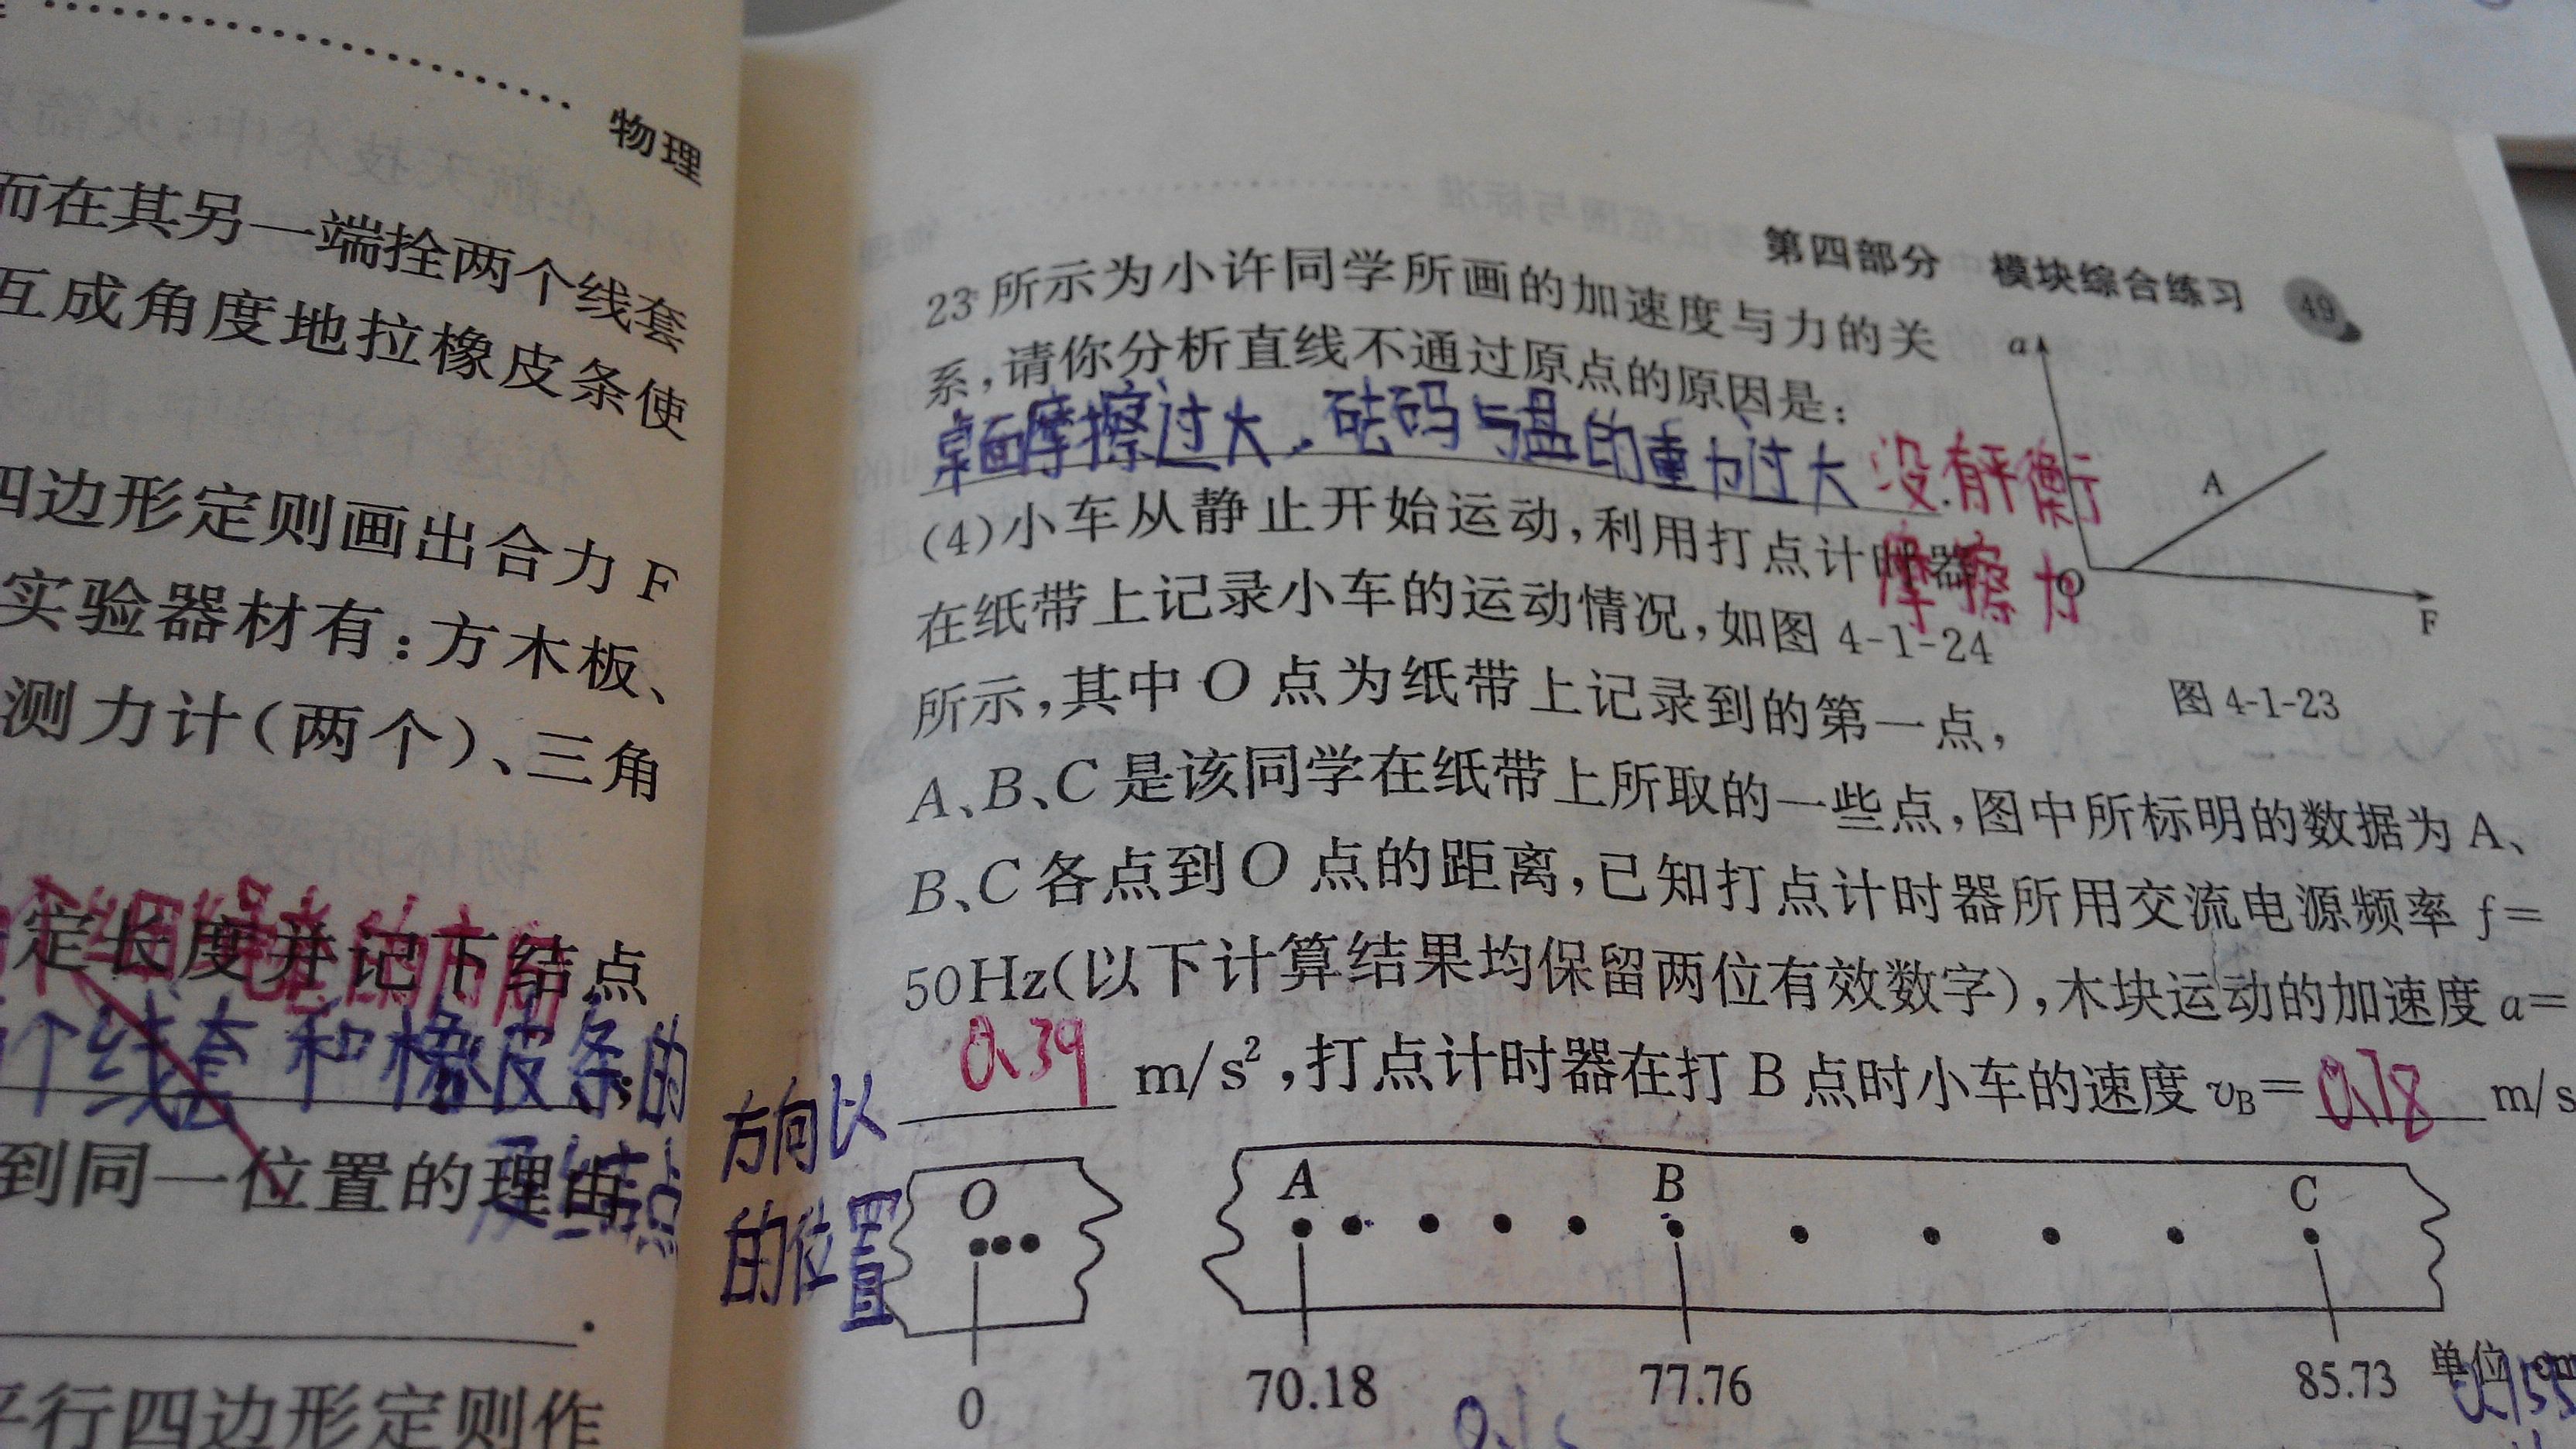 物理
而在其另一端拴两个线套
互成角度地拉橡皮条使
四边形定则画出合力 F
实验器材有：方木板、
测力计(两个)、三角
定长度并记下结点
个线套 和橡皮条的
方向以
到同一位置的理由
及结点
的位置
平行四边形定则作
第四部分 模块综合练习 49
23 所示为小许同学所画的加速度与力的关
系,请你分析直线不通过原点的原因是:
桌面摩擦过大、砝码与盘的重力过大
没有平衡
摩擦力
(4)小车从静止开始运动,利用打点计时器
在纸带上记录小车的运动情况,如图 4-1-24
所示,其中 O 点为纸带上记录到的第一点,
a
A
O
F
图 4-1-23
A、B、C 是该同学在纸带上所取的一些点,图中所标明的数据为 A、
B、C 各点到 O 点的距离,已知打点计时器所用交流电源频率 f=
50Hz(以下计算结果均保留两位有效数字),木块运动的加速度 a=
0.39 m/s²,打点计时器在打 B 点时小车的速度 vB= 0.78 m/s
O A B C
0 70.18 77.76 85.73 单位:cm